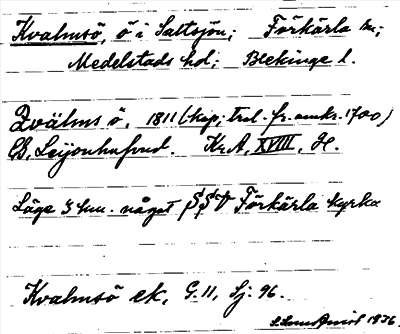 Kvalmsö, ö i Saltsjön; Förkärla sn;
Medelstads hd; Blekinge l.
Qvälms ö, 1811 (kop; trol. fr. omkr. 1700)
C.B. Leijonhufvud. Kr.A, XVIII, H.
Läge 3 km. något SSV Förkärla kyrka
Kvalmsö ek, G. 11, Sj. 96.
1936